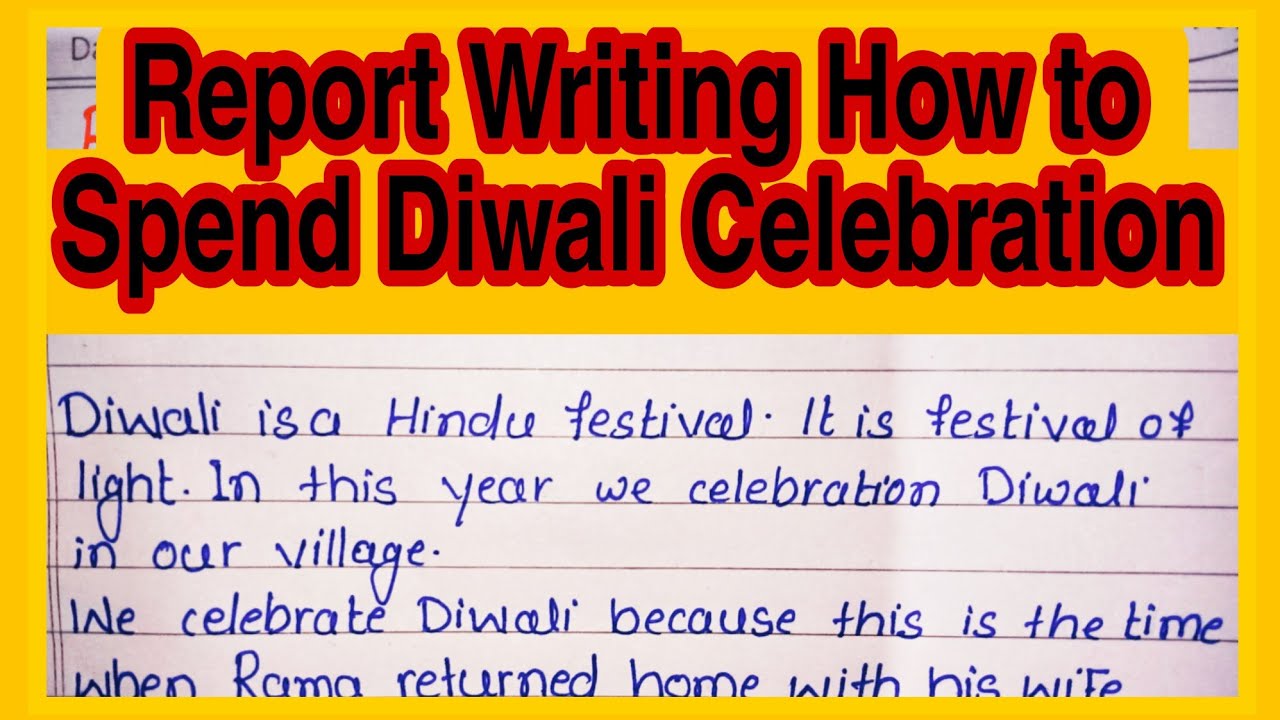 Report Writing How to
Spend Diwali Celebration
Diwali is a Hindu festival. It is festival of
light. In this year we celebration Diwali
in our village.
We celebrate Diwali because this is the time
when Rama returned home with his wife